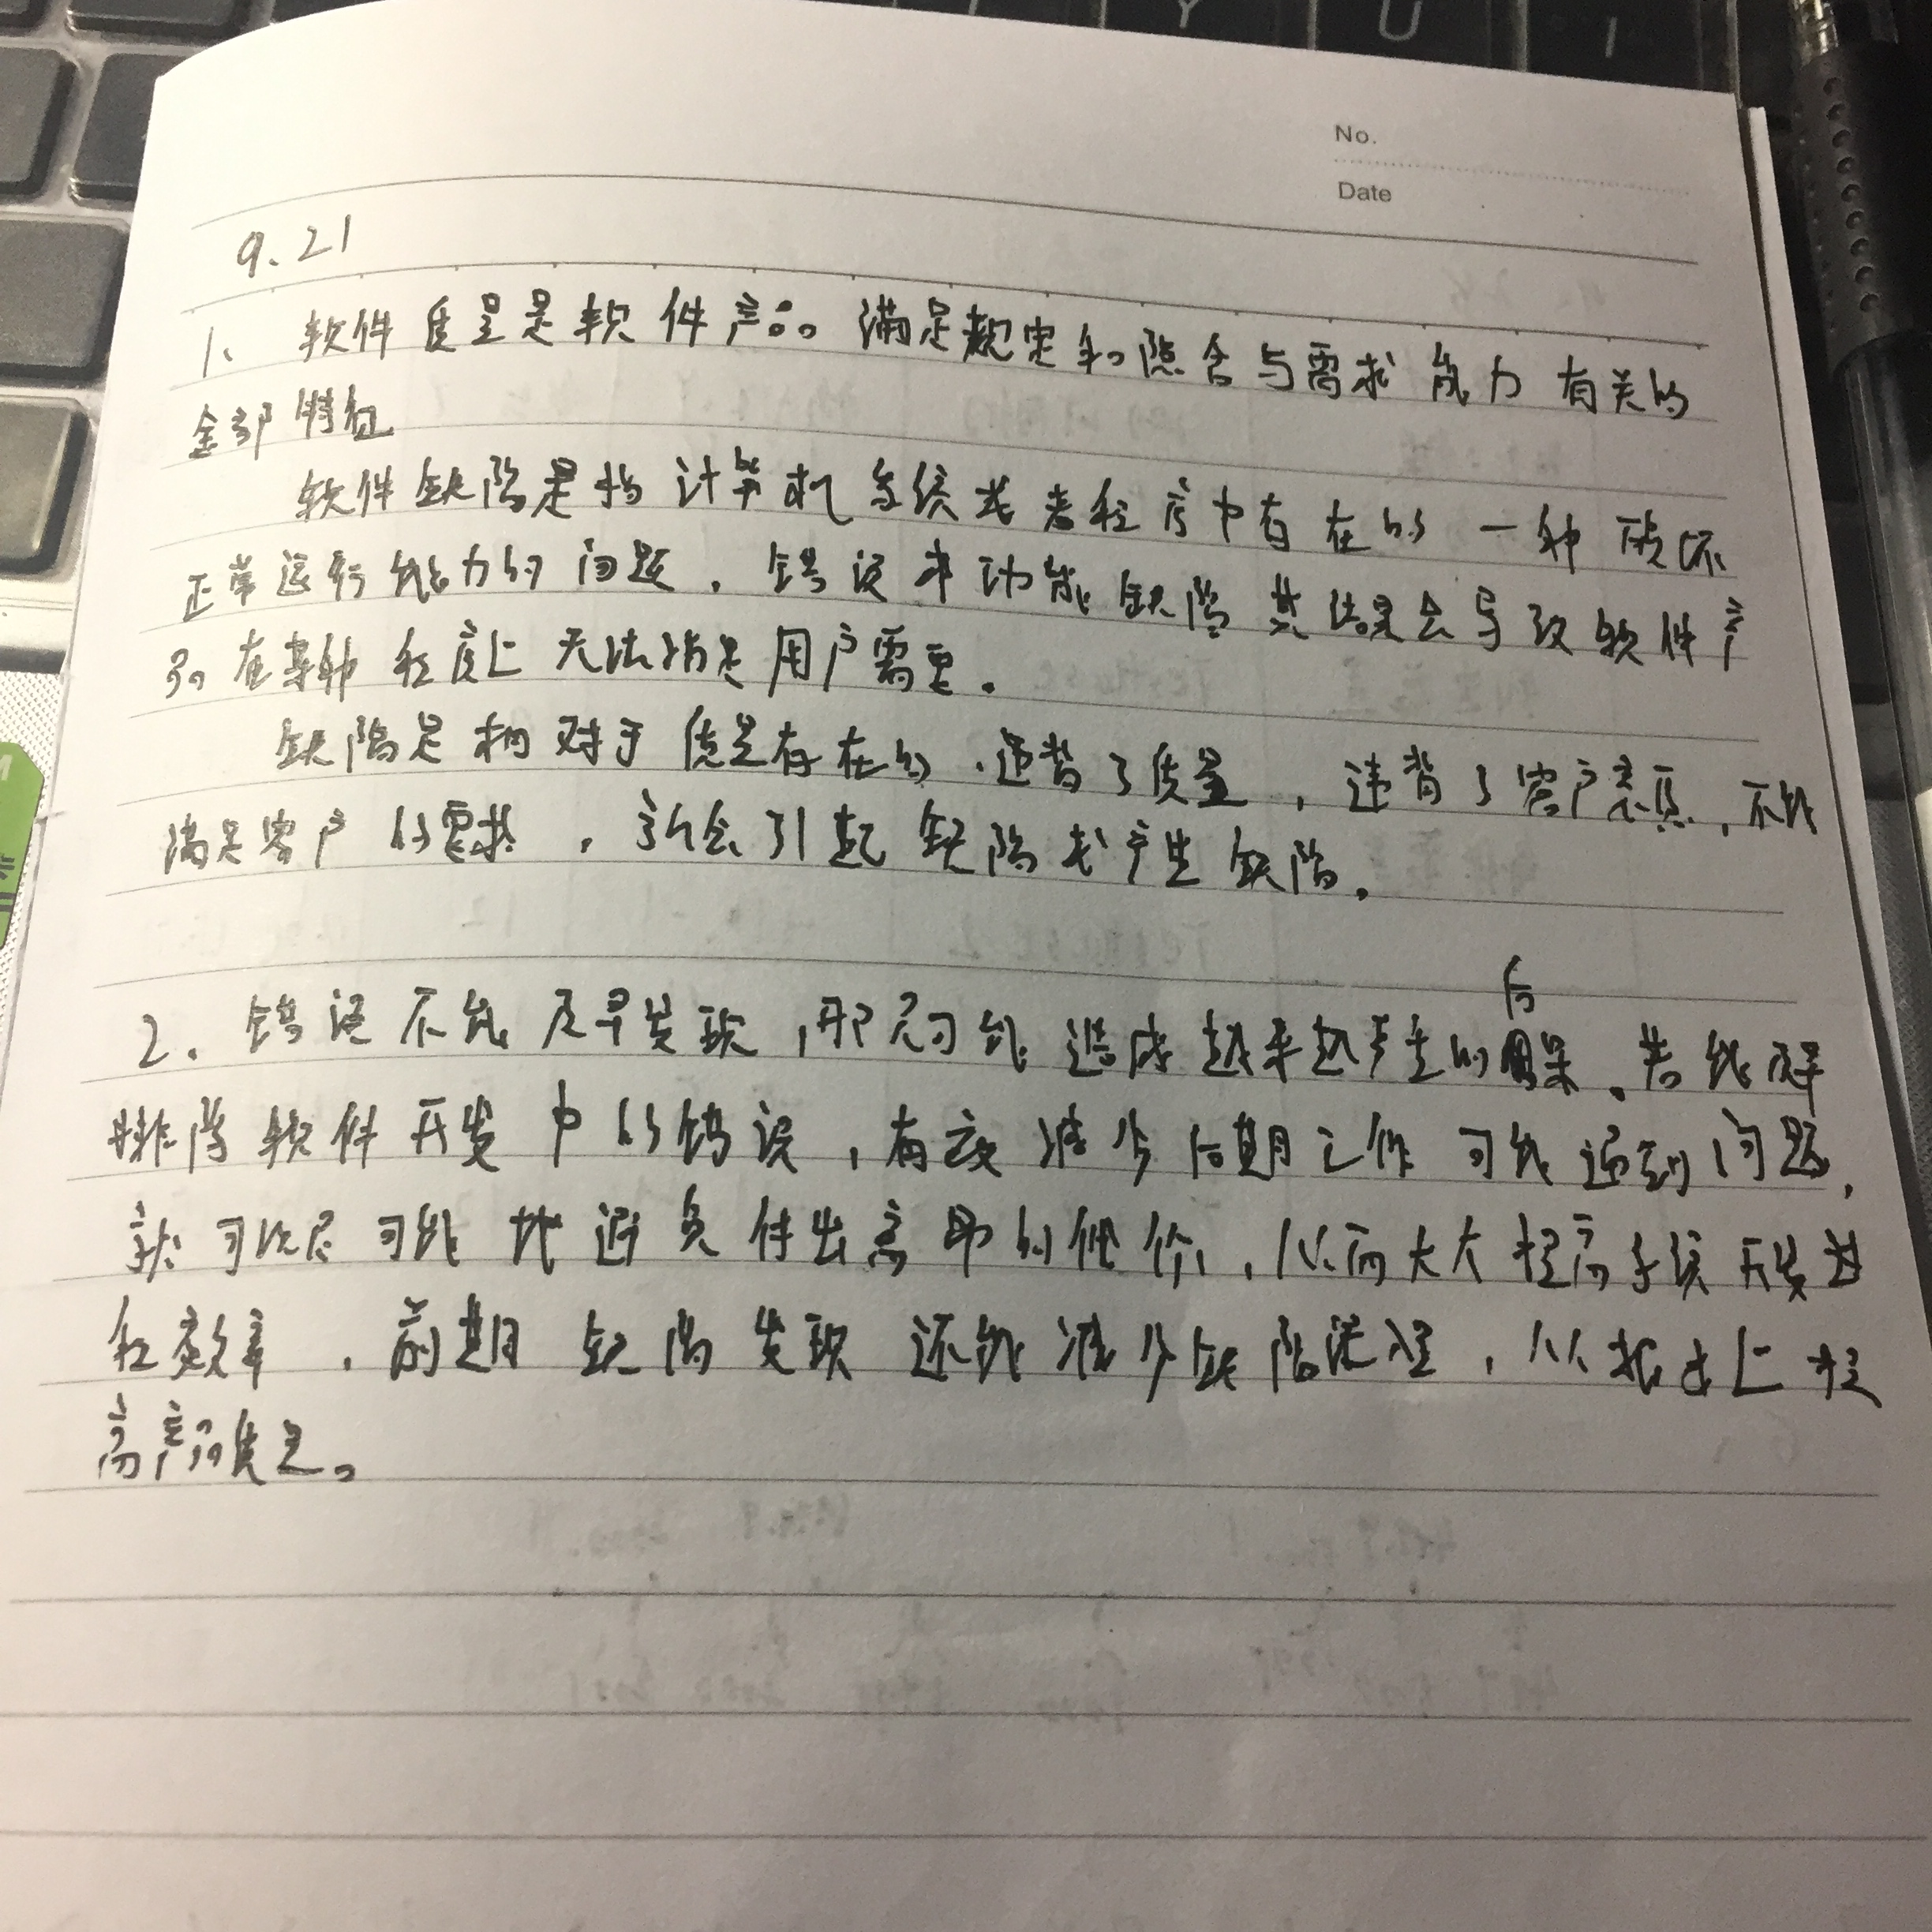 Y U I
No.
Date
9.21
1、软件质量是软件产品满足规定和隐含与需求能力有关的
全部特征
软件缺陷是指计算机系统或者程序中存在的一种破坏
正常运行能力的问题,错误或功能缺陷其结果会导致软件产
品在某种程度上无法满足用户需要.
缺陷是相对于质量存在的.违背了质量,违背了客户意愿,不能
满足客户的需求,就会引起缺陷或产生缺陷.
2.错误不能尽早发现,那只可能造成越来越严重的后果.若能尽早
排除软件开发中的错误,有效减少后期工作可能遇到问题,
就可以尽可能地避免付出高昂的代价,从而大大提高系统开发过
程效率,前期缺陷发现还能减少缺陷泄漏,从根本上提
高产品质量。